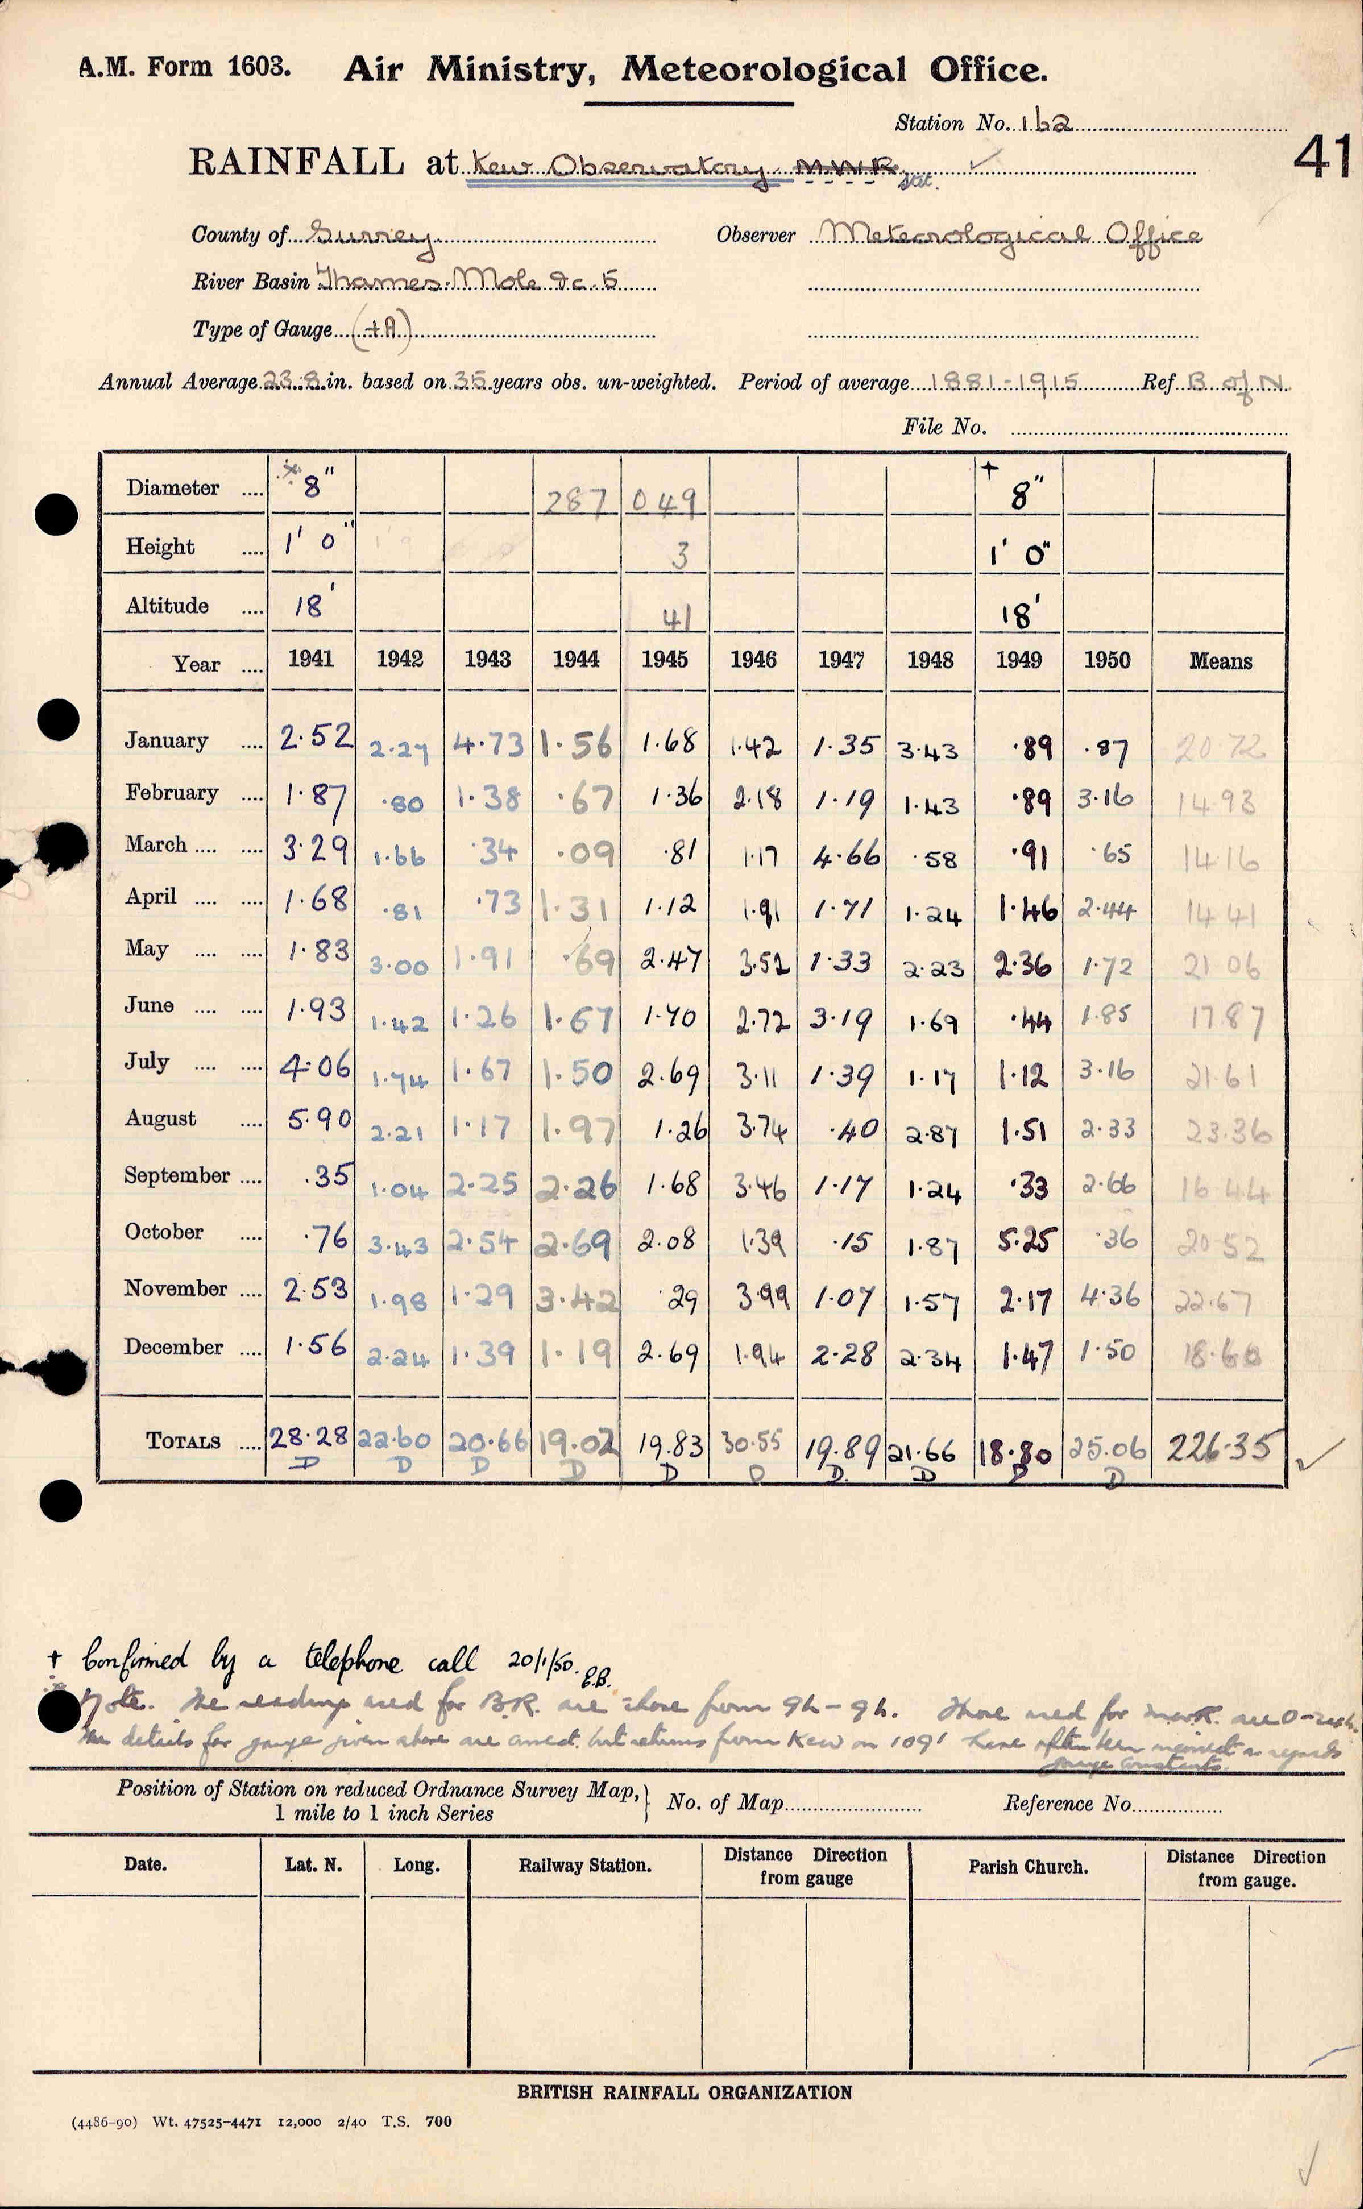 A.M. Form 1603. Air Ministry, Meteorological Office.
Station No. 162
41
RAINFALL at Kew Observatory M.W.R. Stat.
County of Surrey Observer Meteorological Office
River Basin Thames. Mole &c. 5
Type of Gauge (+A)
Annual Average 23.8 in. based on 35 years obs. un-weighted. Period of average 1881-1915 Ref B of N.
File No.
Diameter .... 8" 287 049 † 8"
Height .... 1' 0" 3 1' 0"
Altitude .... 18' 41 18'
Year .... 1941 1942 1943 1944 1945 1946 1947 1948 1949 1950 Means
January .... 2.52 2.27 4.73 1.56 1.68 1.42 1.35 3.43 .89 .87 20.72
February .... 1.87 .80 1.38 .67 1.36 2.18 1.19 1.43 .89 3.16 14.93
March .... .... 3.29 1.66 .34 .09 .81 1.17 4.66 .58 .91 .65 14.16
April .... .... 1.68 .81 .73 1.31 1.12 1.91 1.71 1.24 1.46 2.44 14.41
May .... .... 1.83 3.00 1.91 .69 2.47 3.52 1.33 2.23 2.36 1.72 21.06
June .... .... 1.93 1.42 1.26 1.67 1.70 2.72 3.19 1.69 .44 1.85 17.87
July .... .... 4.06 1.74 1.67 1.50 2.69 3.11 1.39 1.17 1.12 3.16 21.61
August .... 5.90 2.21 1.17 1.97 1.26 3.74 .40 2.87 1.51 2.33 23.36
September .... .35 1.04 2.25 2.26 1.68 3.46 1.17 1.24 .33 2.66 16.44
October .... .76 3.43 2.54 2.69 2.08 1.39 .15 1.87 5.25 .36 20.52
November .... 2.53 1.98 1.29 3.42 .29 3.99 1.07 1.57 2.17 4.36 22.67
December .... 1.56 2.24 1.39 1.19 2.69 1.94 2.28 2.34 1.47 1.50 18.60
TOTALS .... 28.28 22.60 20.66 19.02 19.83 30.55 19.89 21.66 18.80 25.06 226.35
D D D D D D D. D D D
† Confirmed by a telephone call 20/1/50. E.B.
Note. The readings used for B.R. are those from 9h-9h. Those used for M.W.R. are 0-24h.
The details for gauge given above are correct, but returns from Kew on 1091 have often been incorrect as regards
gauge constants.
Position of Station on reduced Ordnance Survey Map, } No. of Map Reference No.
1 mile to 1 inch Series
Date. Lat. N. Long. Railway Station. Distance Direction from gauge Parish Church. Distance Direction from gauge.
BRITISH RAINFALL ORGANIZATION
(4486-90) Wt. 47525-4471 12,000 2/40 T.S. 700